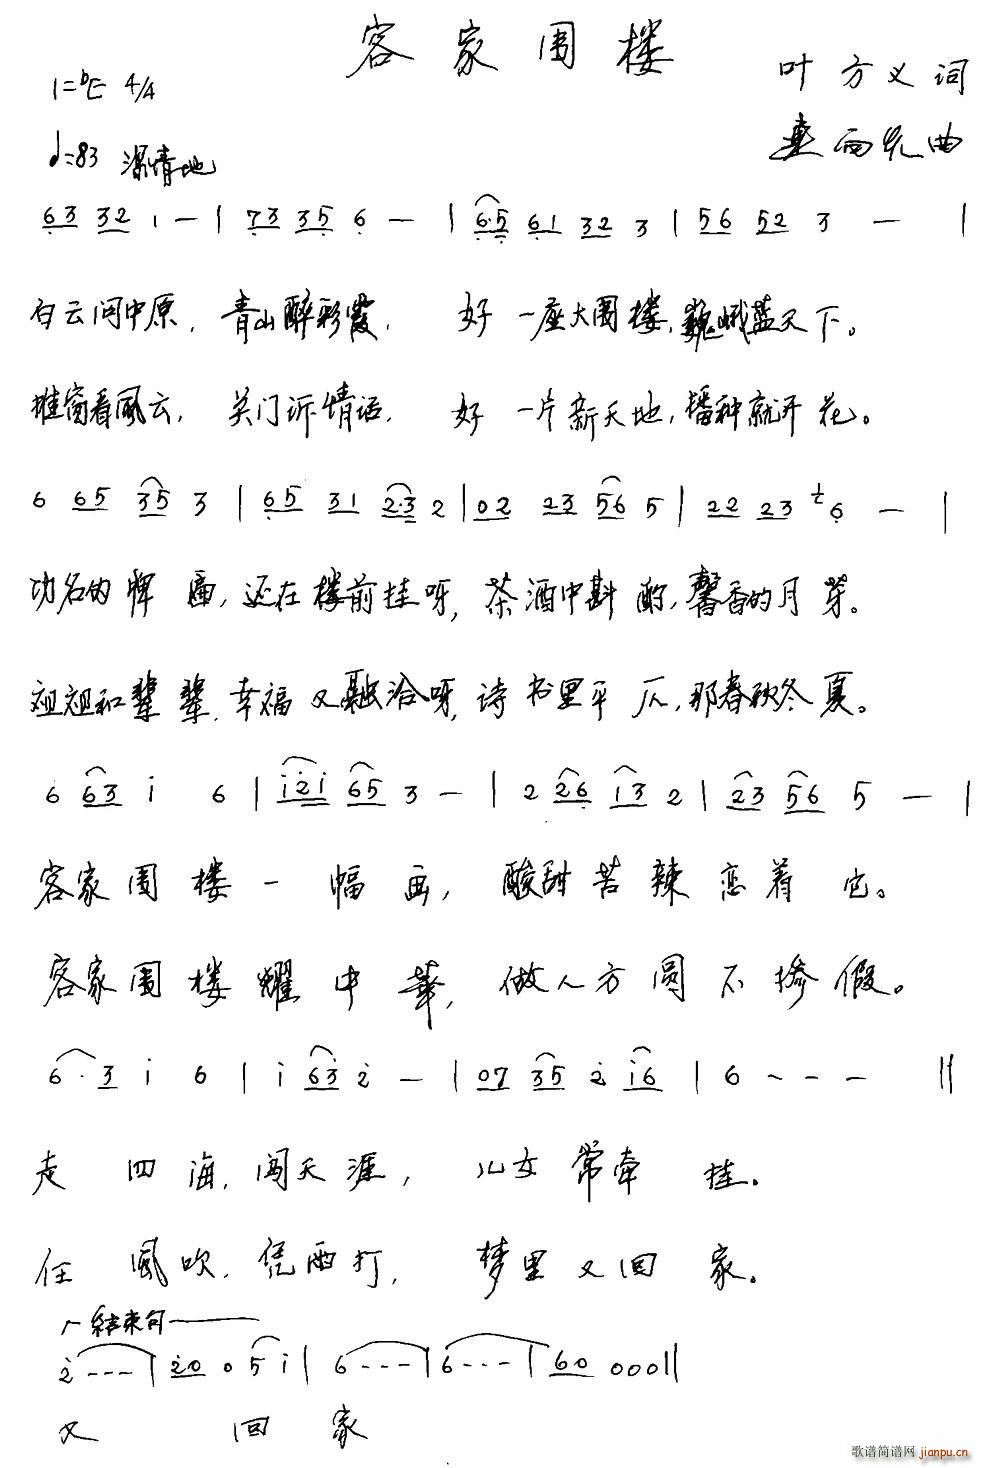 客家围楼
1=♭E 4/4
叶方义词
♩=83 深情地
曲
6̣3 32 1 — | 7̣3 335 6 — | 6̣·5̣ 6̣1 32 3 | 56 52 3 — |
白云问中原，青山醉彩霞， 好一座大围楼，巍峨蓝天下。
推窗看风云，关门诉情话， 好一片新天地，播种就开花。
6 65 35 3 | 65 31 2·3 2 | 02 23 56 5 | 22 23 6 — |
功名的牌匾，还在楼前挂呀，茶酒中斟酌，馨香的月芽。
祖祖和辈辈，幸福又融洽呀，诗书里平仄，那春秋冬夏。
6 63 i 6 | i2i 65 3 — | 2 26 13 2 | 23 56 5 — |
客家围楼一幅画，酸甜苦辣恋着它。
客家围楼耀中华，做人方圆不掺假。
6·3 i 6 | i 63 2 — | 07 35 2 i6 | 6 - - - ‖
走四海，闯天涯，儿女常牵挂。
任风吹，凭雨打，梦里又回家。
结束句
2 - - - | 20 0 5 i | 6 - - - | 6 - - - | 60 000 ‖
又回家
歌谱简谱网 jianpu.cn